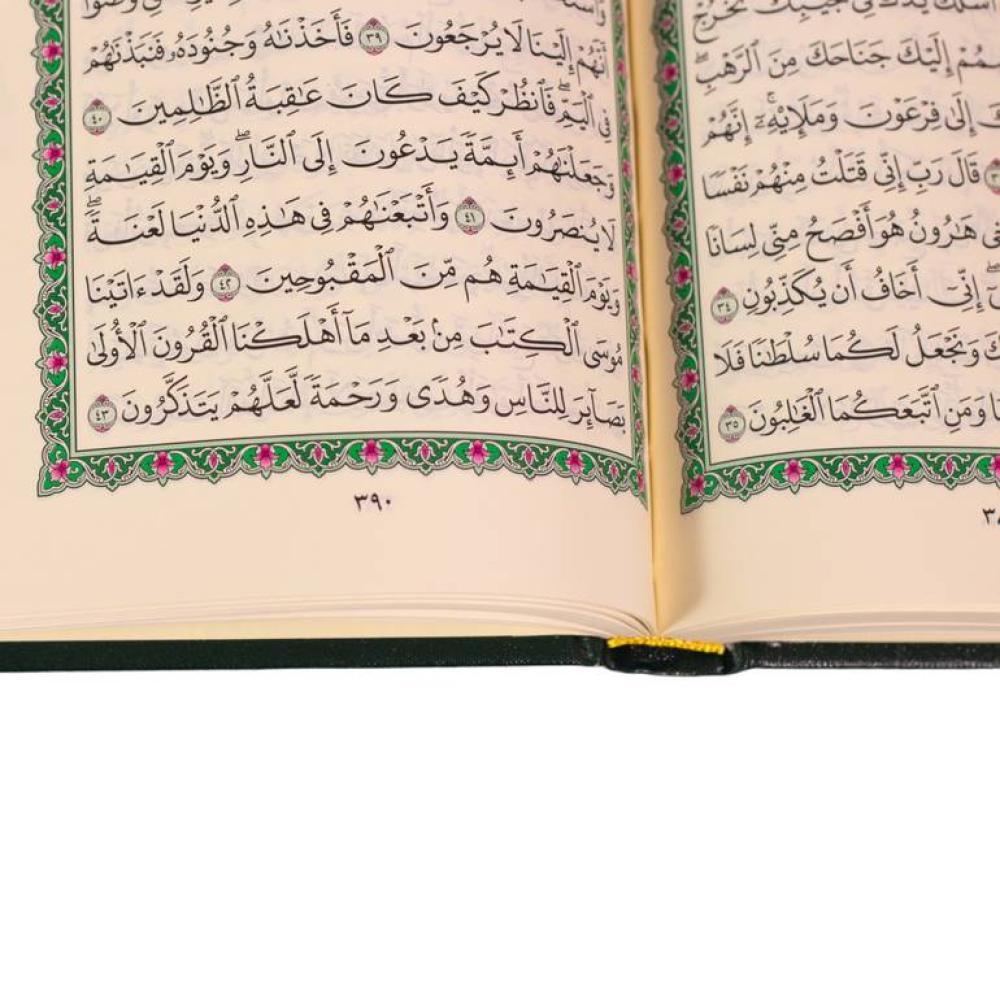 أَسْلُكْ يَدَكَ فِى جَيْبِكَ تَخْرُجْ
إِلَيْكَ جَنَاحَكَ مِنَ ٱلرَّهْبِ
إِلَىٰ فِرْعَوْنَ وَمَلَإِيْهِۦٓ إِنَّهُمْ
قَالَ رَبِّ إِنِّى قَتَلْتُ مِنْهُمْ نَفْسًا
هَٰرُونُ هُوَ أَفْصَحُ مِنِّى لِسَانًا
إِنِّىٓ أَخَافُ أَن يُكَذِّبُونِ ٣٤
وَنَجْعَلُ لَكُمَا سُلْطَٰنًا فَلَا
وَمَنِ ٱتَّبَعَكُمَا ٱلْغَٰلِبُونَ ٣٥
أَنَّهُمْ إِلَيْنَا لَا يُرْجَعُونَ ٣٩ فَأَخَذْنَٰهُ وَجُنُودَهُۥ فَنَبَذْنَٰهُمْ
فِى ٱلْيَمِّ ۖ فَٱنظُرْ كَيْفَ كَانَ عَٰقِبَةُ ٱلظَّٰلِمِينَ ٤٠
وَجَعَلْنَٰهُمْ أَئِمَّةً يَدْعُونَ إِلَى ٱلنَّارِ ۖ وَيَوْمَ ٱلْقِيَٰمَةِ
لَا يُنصَرُونَ ٤١ وَأَتْبَعْنَٰهُمْ فِى هَٰذِهِ ٱلدُّنْيَا لَعْنَةً ۖ
وَيَوْمَ ٱلْقِيَٰمَةِ هُم مِّنَ ٱلْمَقْبُوحِينَ ٤٢ وَلَقَدْ ءَاتَيْنَا
مُوسَى ٱلْكِتَٰبَ مِنۢ بَعْدِ مَآ أَهْلَكْنَا ٱلْقُرُونَ ٱلْأُولَىٰ
بَصَآئِرَ لِلنَّاسِ وَهُدًى وَرَحْمَةً لَّعَلَّهُمْ يَتَذَكَّرُونَ ٤٣
٣٩٠